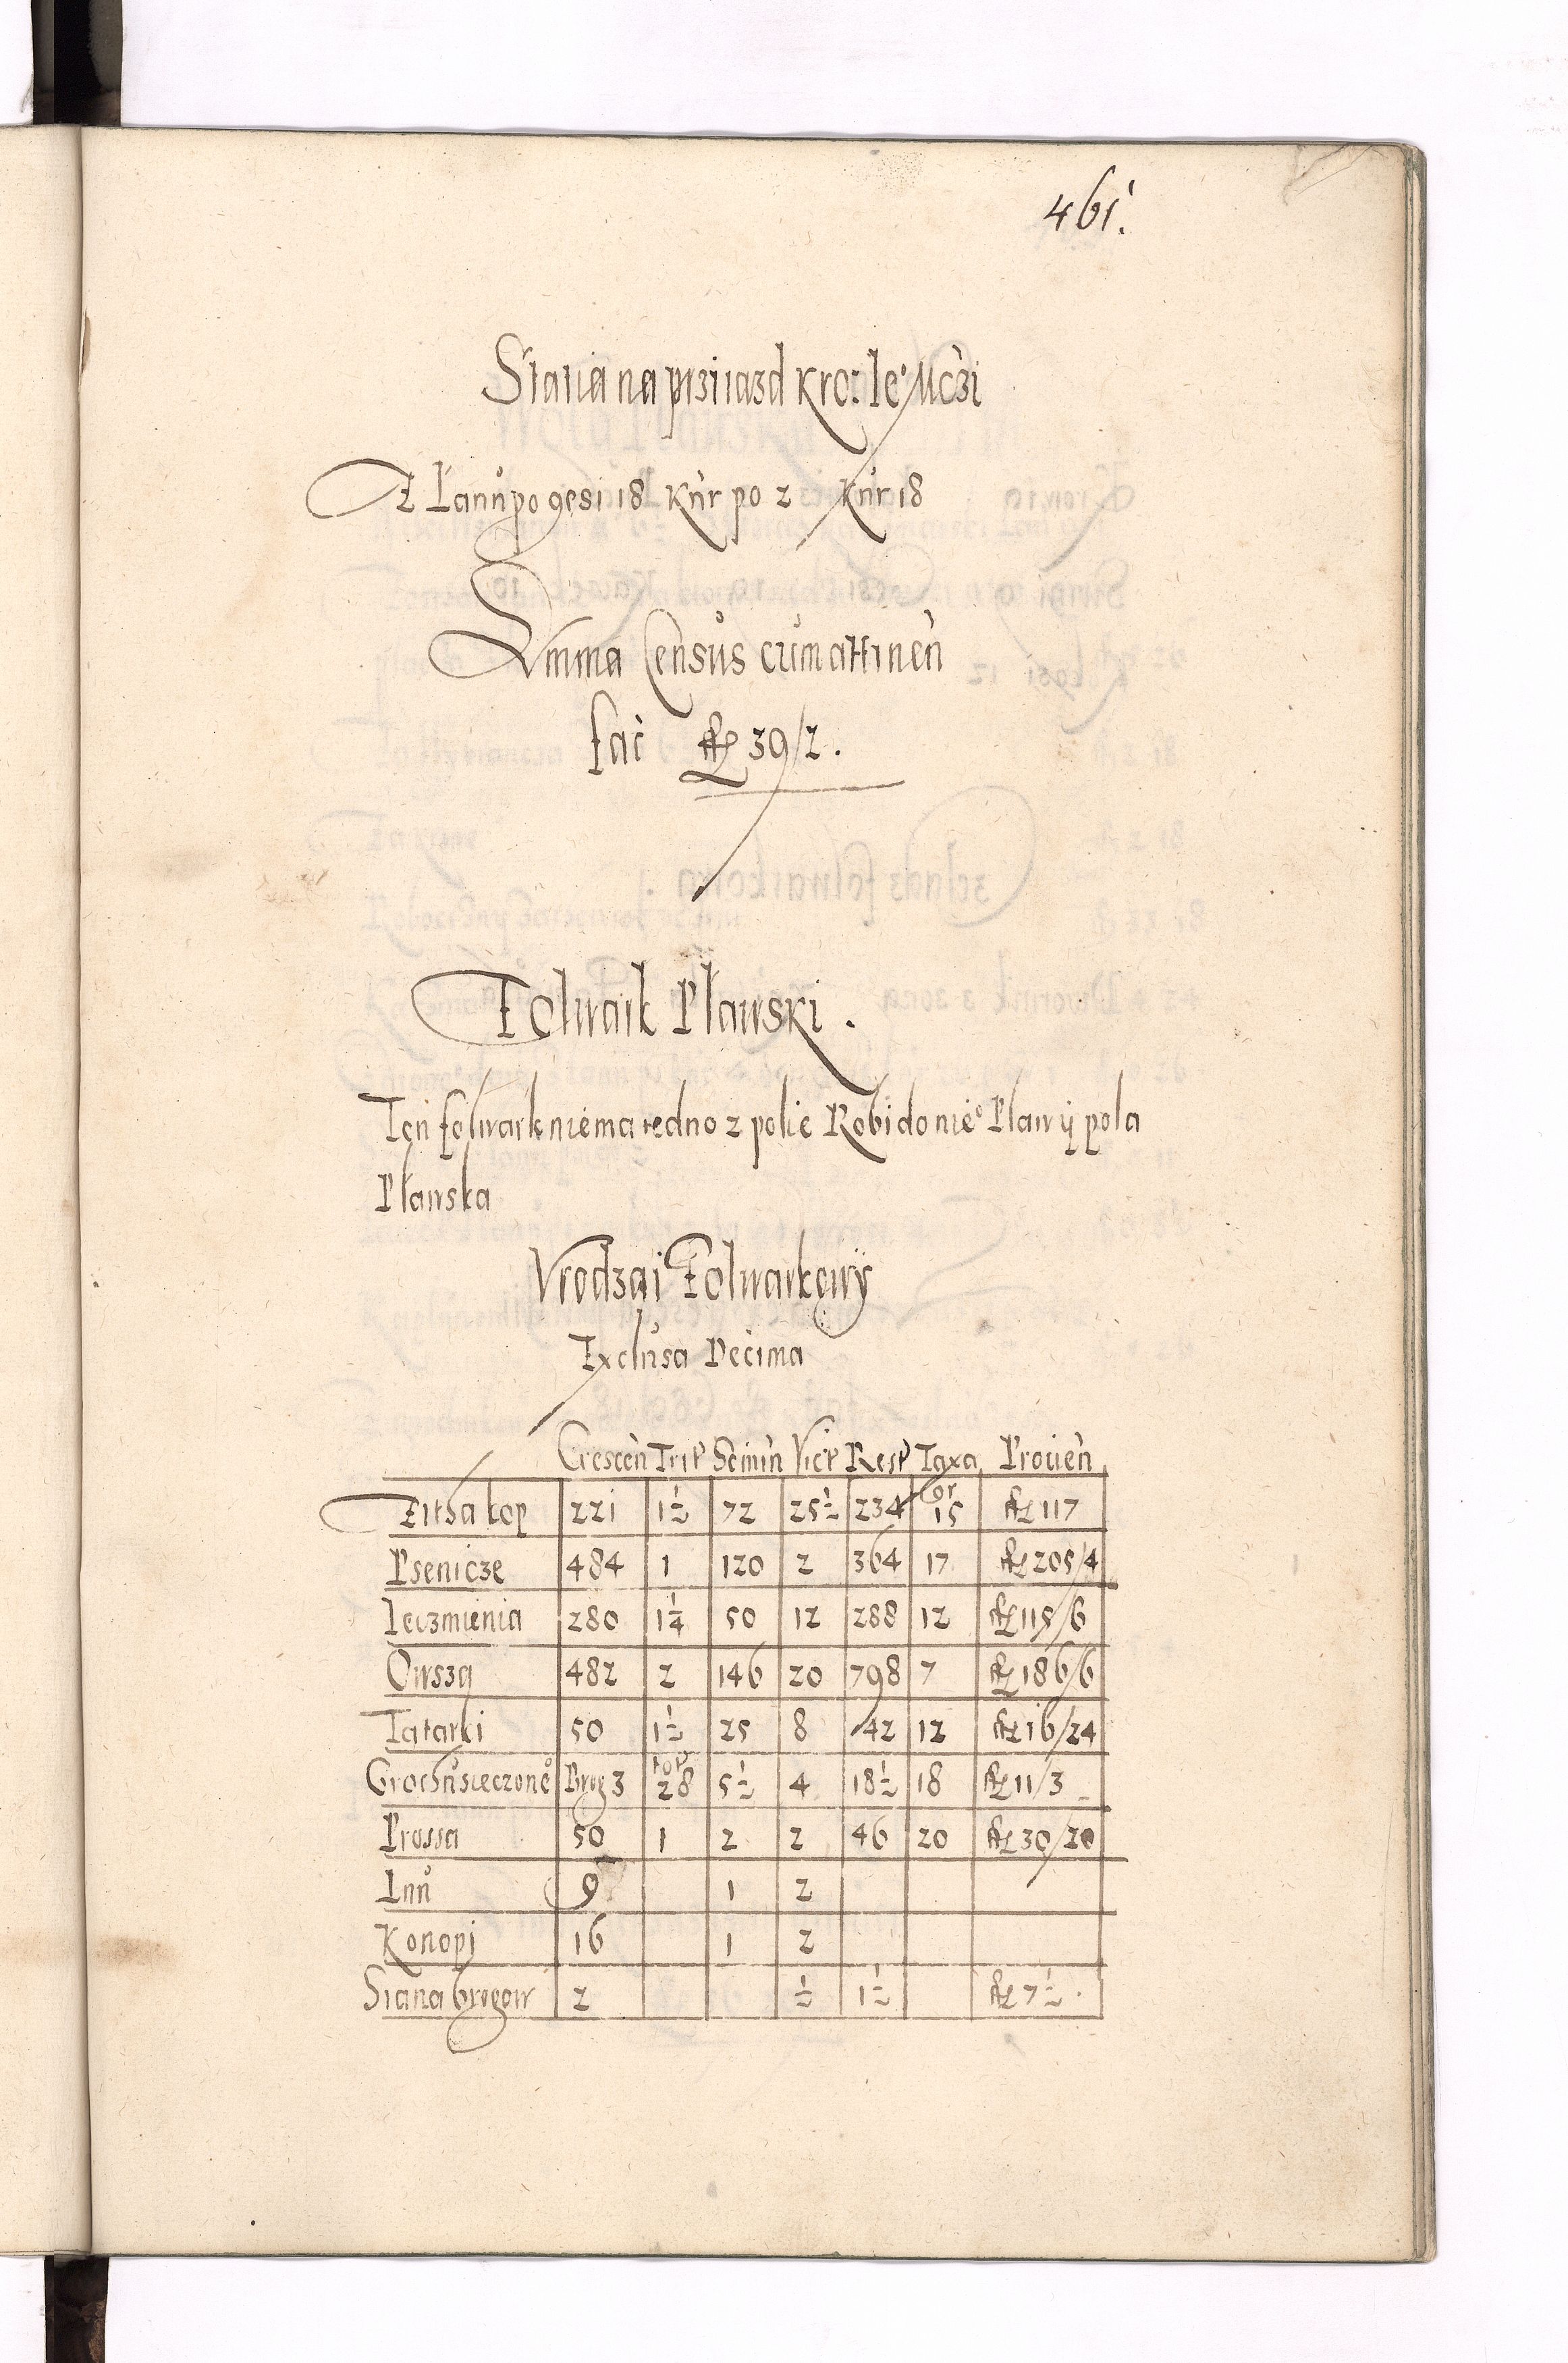 461.
Statia na przijazd Kro: Ie° Mczi
Z Łanu po gęsi 18 Kur po 2 Kur 18
Summa Census cum attinen
fac fl 39/2.
Folwark Pławski.
Ten folwark nie ma iedno 2 polie Robi do nie° Pławy y pola
Pławska
Vrodzai Folwarkowy
Exclusa Decima
Crescen Trit Semin Vict Rest Taxa Provien
Zitha kop 221 1½ 72 25½ 234 gr 15 fl 117
Psenicze 484 1 120 2 364 17 fl 205/4
Ieczmienia 280 1¼ 50 12 288 12 fl 115/6
Owsza 482 2 146 20 798 7 fl 186/6
Tatarki 50 1½ 25 8 42 12 fl 16/24
Grochu sieczone° Brog 3 kor 28 5½ 4 18½ 18 fl 11/3
Prossa 50 1 2 2 46 20 fl 30/20
Lnu 9 1 2
Konopi 16 1 2
Siana brogow 2 ½ 1½ fl 7½.